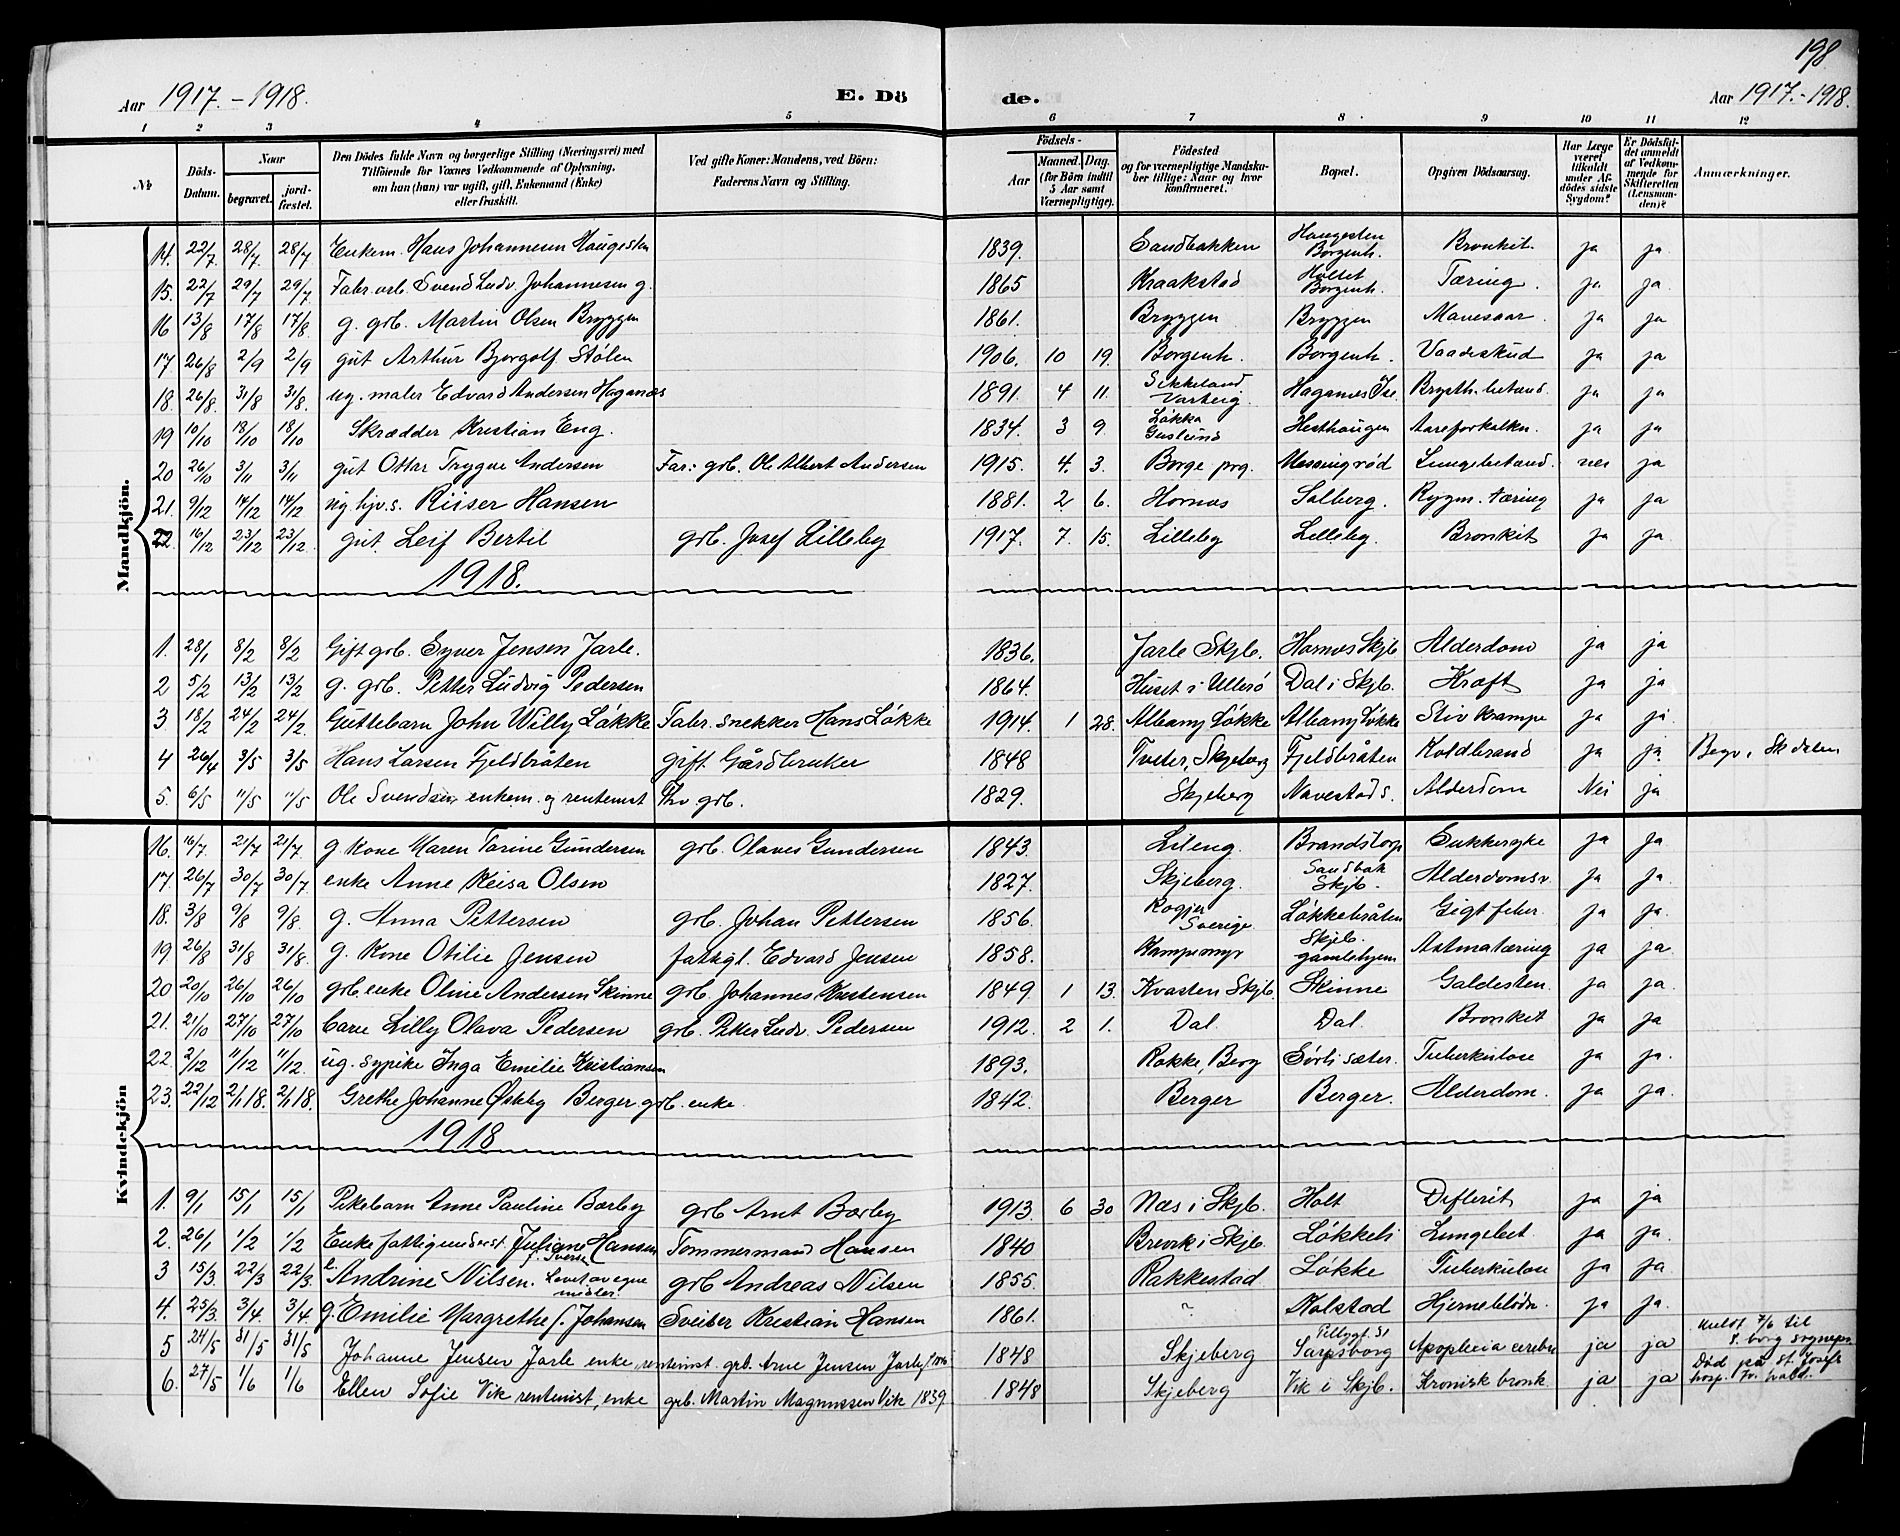 198
Aar 1917.-1918. E. Dö de. Aar 1917.-1918.
1 2 3 4 5 6 7 8 9 10 11 12
№ Döds-Datum. Naar begravet. jord-fæstet. Den Dödes fulde Navn og borgerlige Stilling (Næringsvei) med Tilföiende for Voxnes Vedkommende af Oplysning, om hun (han) var ugift, gift, Enkemand (Enke) eller fraskilt. Ved gifte Koner: Mandens, ved Börn: Faderens Navn og Stilling. Födsels- Aar Maaned. Dag. (for Börn indtil 5 Aar samt Værnepligtige). Födested og for værnepligtige Mandskaber tillige: Naar og hvor konfirmeret. Bopæl. Opgiven Dödsaarsag. Har Læge været tilkaldt under Afdödes sidste Sygdom? Er Dödsfaldet anmeldt af Vedkommende for Skifteretten (Lensmanden)? Anmærkninger.
Mandkjön.
14. 22/7 28/7 28/7 Enkem. Hans Johannesen Haugesten 1839. Sandbakken Haugesten Borgenh. Bronkit. ja ja
15. 22/7 29/7 29/7 Fabr. arb. Svend Ludv. Johannesen g. 1865 Kraakstad Holtet Borgenh. Tæring. ja ja
16 13/8 17/8 17/8 g. grb. Martin Olsen Bryggen 1861. Bryggen Bryggen Mavesaar. ja ja
17. 26/8 2/9 2/9 gut Arthur Bjorgolf Stølen 1906. 10 19. Borgenh. Borgenh. Vaadeskud ja ja
18. 26/8. 31/8 31/8. ug. maler Edvard Andersen Haganæs 1891. 4 11. Sikkeland Varteig. Haganæs Ise. Brysth. betænd. ja ja
19 10/10 18/10 18/10 Skrædder Kristian Eng. 1834. 3 9 Løkka Guslund Hesthaugen Aareforkalkn. ja ja
20 26/10 3/11 3/11 gut Ottar Trygve Andersen Far: grb. Ole Albert Andersen 1915. 4. 3. Borge prg. Messingrød Lungebetænd. nei ja
21. 9/12 14/12 14/12 ug. hjv. s. Riiser Hansen 1881. 2 6. Hornæs Solberg. Rygm. tæring ja ja
22. 16/12 23/12 23/12. gut. Leif Bertil grb. Josef Lilleby 1917. 7. 15. Lilleby Lilleby. Bronkit ja ja
1918.
1. 28/1 8/2 8/2 Gift grb. Syver Jensen Jarle. 1836. Jarle Skjb. Hornæs Skjb Alderdom ja ja
2 5/2 13/2 13/2 g. grb. Petter Ludvig Pedersen 1864. Huset i Ullerø Dal i Skjb. Kræft ja ja
3 18/2 24/2 24/2. Guttebarn John Willy Løkke Fabr. snekker Hans Løkke 1914. 1 28. Albany Løkke Albany Løkke Stivkrampe ja ja
4 26/4 3/5 3/5 Hans Larsen Fjeldbråten gift Gårdbruker 1848 Tveter, Skjeberg Fjeldbråten Koldbrand ja ja. Begr. i Sk dalen
5. 6/5 11/5 11/5 Ole Svendsen, enkem. og rentenist fhv grb. 1829. Skjeberg Navestad s. Alderdom Nei ja
Kvindekjön
16. 16/7 21/7 21/7. g. Kone Maren Torine Gundersen grb. Olaves Gundersen 1843. Lileng. Brandstorp Sukkersyke ja ja.
17. 26/7 30/7 30/7 enke Anne Keisa Olsen 1827. Skjeberg. Sandbak Skjb. Alderdomsv. ja ja.
18. 3/8 9/8 9/8. g. Anna Pettersen grb. Johan Pettersen 1856. Sverige Løkkebråten Gigtfeber. ja ja.
19. 26/8 31/8 31/8. g. Kone Otilie Jensen fattigl. Edvard Jensen 1858. Kampemyr Skjb. gamlehjem Astmatæring ja ja.
20 20/10 26/10 26/10 grb. enke Oline Andersen Skinne grb. Johannes Kristensen 1849. 1 13. Kvasten Skjb. Skinne Galdesten. ja ja
21. 21/10 27/10 27/10 barn Lilly Olava Pedersen grb. Peter Ludv. Pedersen 1912. 2 1. Dal. Dal. Bronkit ja ja
22. 2/12 11/12 11/12. ug. sypike Inga Emilie Kristiansen 1893. Rokke, Berg Sørli sæter. Tuberkulose ja ja.
23. 22/12 2/1 18. 2/1 18. Grethe Johanne Østby Berger grb. enke. 1842. Berger Berger. Alderdom. ja ja.
1918
1. 9/1 15/1 15/1 Pikebarn Anne Pauline Bærby grb Arnt Bærby 1913. 6 30 Næs i Skjb. Holt Difterit ja ja
2. 26/1 1/2 1/2 Enke fattigunderst. Juliane Hansen f. Iversen Tømmermand Hansen 1840 Brevik i Skjb. Løkkeli Lungebet. ja ja.
3 15/3. 22/3 22/3 E. Andrine Nilsen. Levet av egne midler. grb Andreas Nilsen 1855. Rakkestad Løkke Tuberkulose ja ja.
4. 25/3. 3/4. 3/4. g. Emilie Margrethe f. Johansen Sveiser Kristian Hansen 1861. " Kolstad Hjerneblødn. ja ja.
5 24/5 31/5 31/5 Johanne Jensen Jarle enke, rentenist. grb. Arne Jensen Jarle f. 1848 Skjeberg Sarpsborg Apoplexia cerebri ja ja Meldt 7/6 til S. borg sognepr.
6. 27/5 1/6 1/6 Ellen Sofie Vik rentenist, enke grb. Martin Magnussen Vik 1839. 1848 Skjeberg Vik i Skjb. Kronisk bronk. ja ja Død på St. Josefs hosp. Fr. hald.